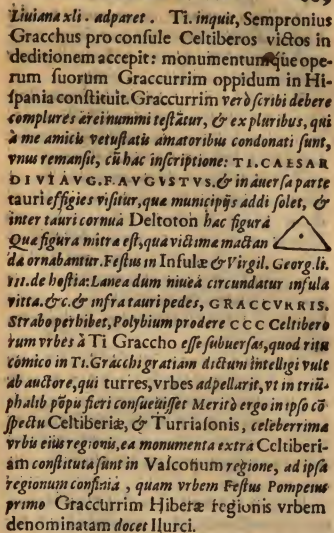 Liuiana xli. adparet. Ti. inquit, Sempronius
Gracchus pro consule Celtiberos victos in
deditionem accepit: monumentumque ope-
rum suorum Graccurrim oppidum in Hi-
spania constituit. Graccurrim verò scribi debere
complures ærei nummi testãtur, & ex pluribus, qui
à me amicis vetustatis amatoribus condonati sunt,
vnus remansit, cũ hac inscriptione: TI. CAESAR
DIVI AVG. F. AVGVSTVS. & in auersa parte
tauri effigies visitur, quæ municipijs addi solet, &
inter tauri cornua Deltoton hac figurâ
Quæ figura mitra est, qua victimæ mactan
dæ ornabantur. Festus in Infulæ & Virgil. Georg. li.
III. de hostia: Lanea dum niueâ circundatur infula
vitta. &c. & infra tauri pedes, GRACCVRRIS.
Strabo perhibet, Polybium prodere CCC Celtibero
rum vrbes à Ti Graccho esse subuersas, quod ritu
comico in Ti. Gracchi gratiam dictum intelligi vult
ab auctore, qui turres, vrbes adpellarit, vt in triũ-
phalib põpu fieri consueuisset Meritò ergo in ipso cõ
spectu Celtiberiæ, & Turiasonis, celeberrimæ
vrbis eius regionis, ea monumenta extra Celtiberi-
am constituta sunt in Vasconum regione, ad ipsa
regionum confinia, quam vrbem Festus Pompeius
primo Graccurrim Hiberæ regionis vrbem
denominatam docet Ilurci.